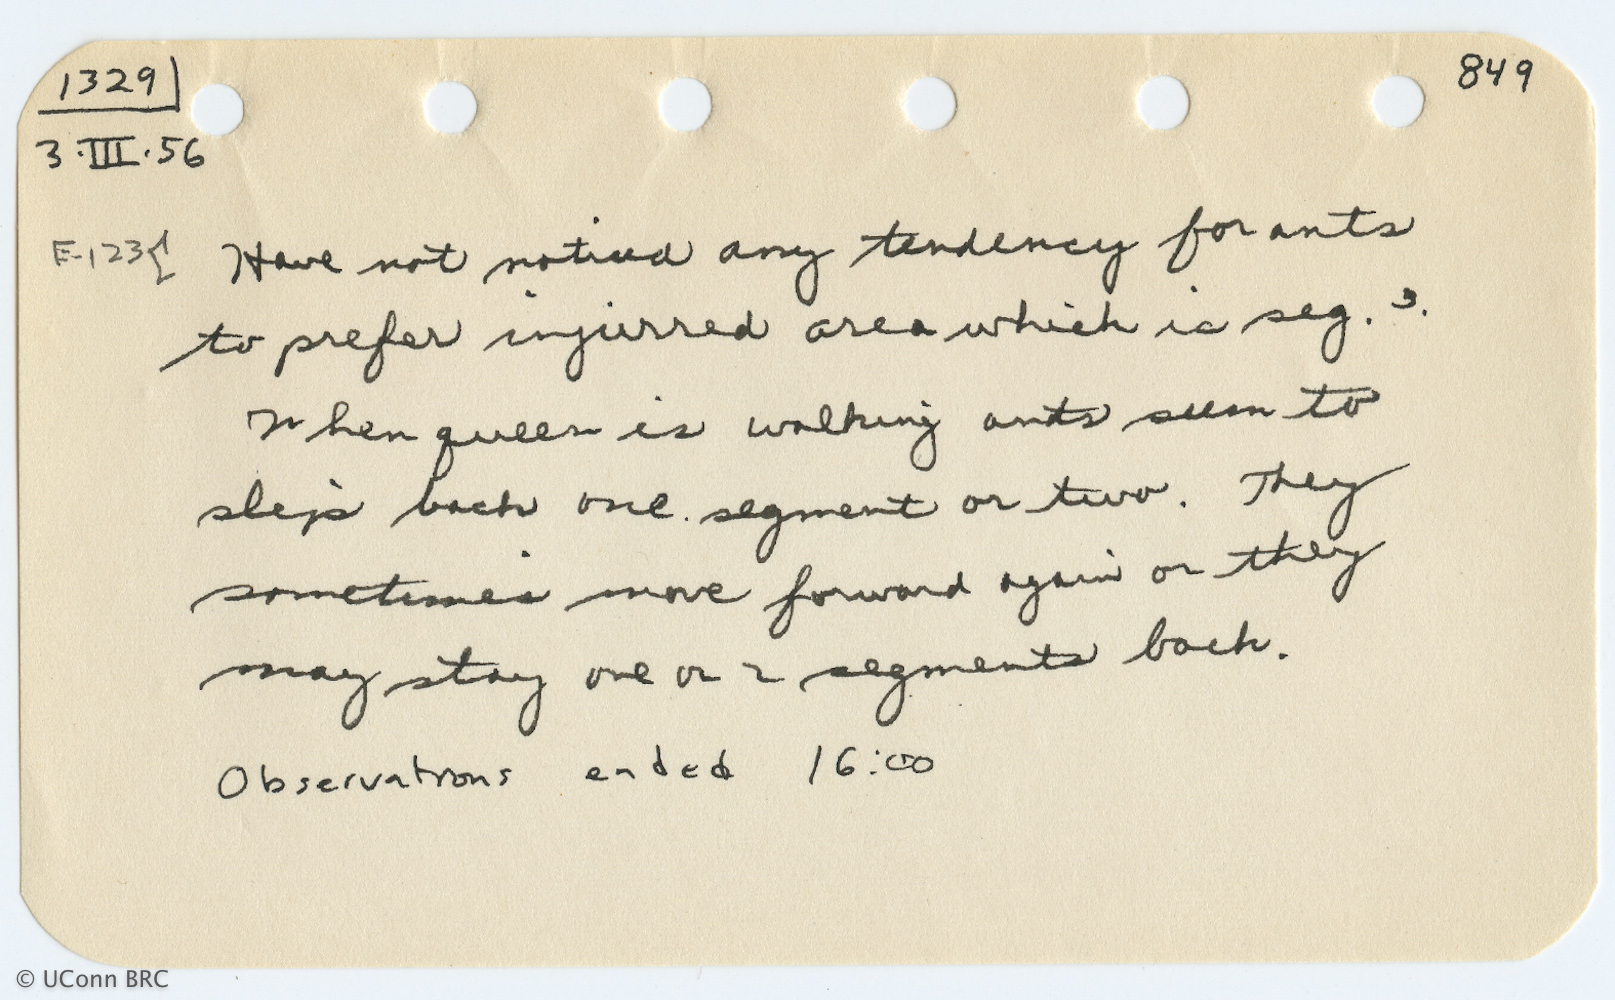 1329
849
3·III·56
E-123{ Have not noticed any tendency for ants
to prefer injurred area which is seg. 3.
When queen is walking ants seem to
slip back one segment or two. They
sometimes move forward again or they
may stay one or 2 segments back.
Observations ended 16:00
© UConn BRC